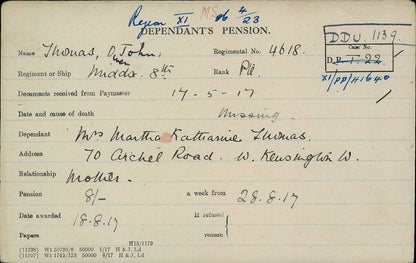 Region XI MS 06 4/23
DEPENDANT'S PENSION.
D.D.U. 1139
Case No.
D.P. 1.22
XI/DP/41640
Name Thomas, O. John. Regimental No. 4618.
Regiment or Ship Middx. 8th Rank Pte
Documents received from Paymaster 17-5-17
Date and cause of death missing.
Dependant Mrs Martha Katharine Thomas.
Address 70 Archel Road. W. Kensington W.
Relationship Mother.
Pension 8/- a week from 28.8.17
Date awarded 18.8.17 If refused
Papers reason
H15/1179
(11284) Wt 50720/6 50000 1/17 H & J, Ld
(14107) Wt 1743/123 50000 4/17 H & J, Ld